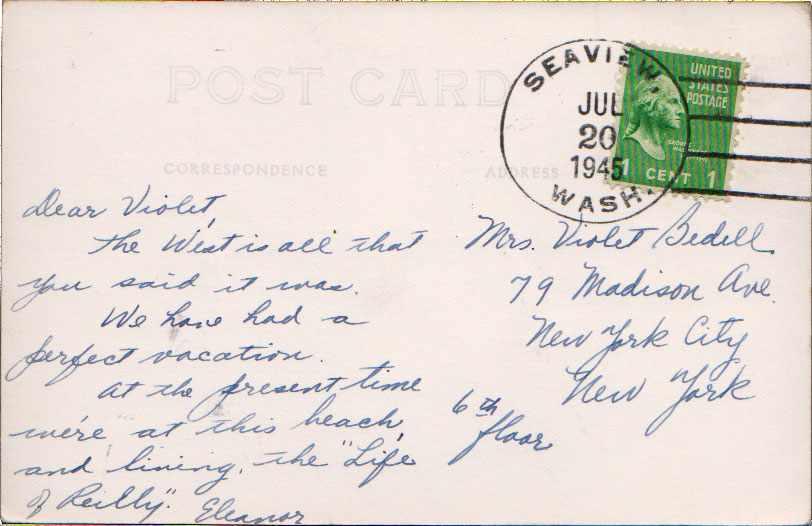 POST CARD
CORRESPONDENCE
ADDRESS
SEAVIEW.
JUL
20
1945
WASH.
UNITED
STATES
POSTAGE
1 CENT 1
Dear Violet,
The West is all that
you said it was.
We have had a
perfect vacation.
At the present time
we're at this beach,
and living, the "Life
of Reilly".
Eleanor
Mrs. Violet Bedell
79 Madison Ave.
New York City
New York
6th
floor